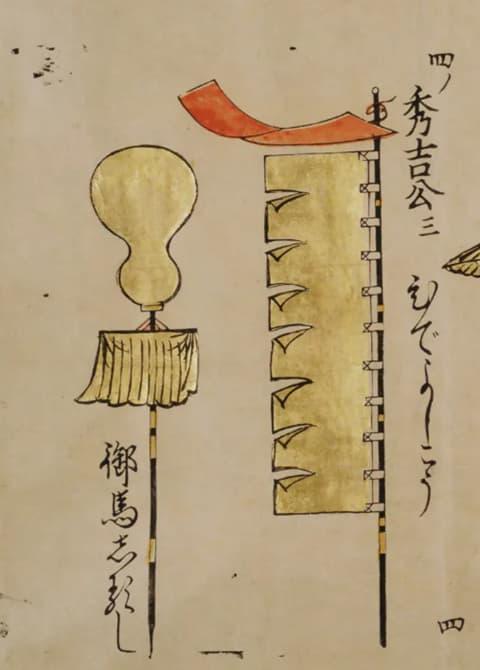 四ノ
秀吉公三
ひでよしこう
四
御馬志るし